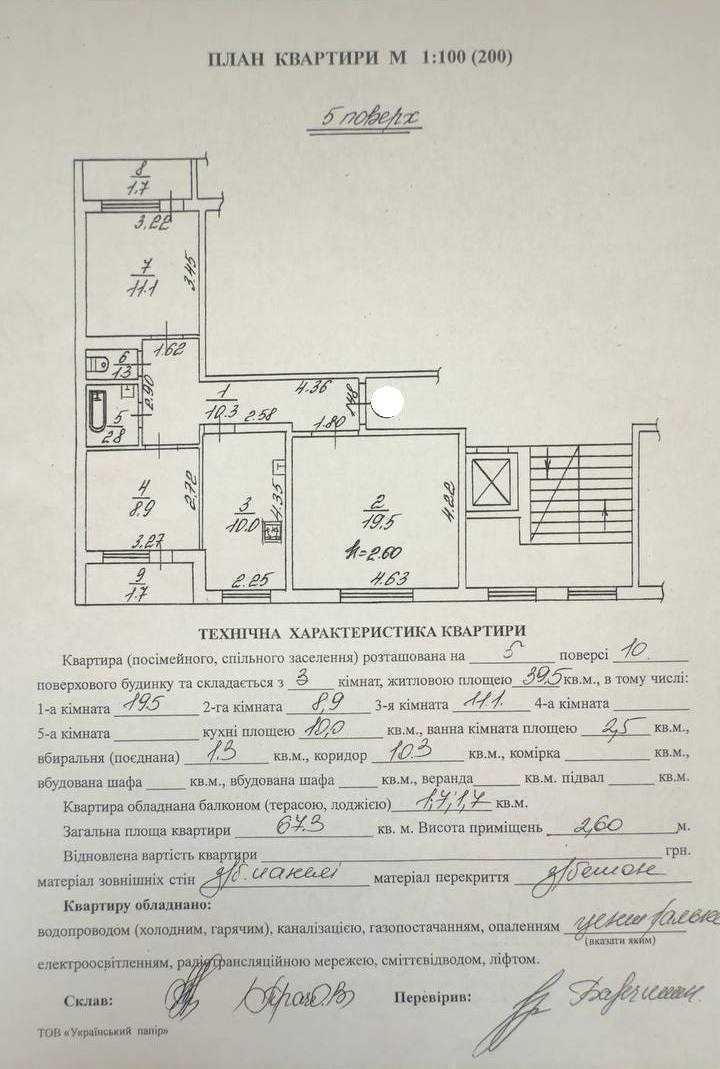 ПЛАН КВАРТИРИ М 1:100 (200)
5 поверх
8
1.7
3.22
7
11.1
3.45
6
1.3
1.62
5
2.8
2.90
1
10.3
4.36
1.48
2.58
1.80
4
8.9
2.72
3.27
3
10.0
4.35
2.25
2
19.5
h=2.60
4.22
4.63
9
1.7
ТЕХНІЧНА ХАРАКТЕРИСТИКА КВАРТИРИ
Квартира (посімейного, спільного заселення) розташована на 5 поверсі 10
поверхового будинку та складається з 3 кімнат, житловою площею 39.5 кв.м., в тому числі:
1-а кімната 19.5 2-га кімната 8,9 3-я кімната 11.1 4-а кімната
5-а кімната кухні площею 10,0 кв.м., ванна кімната площею 2,5 кв.м.,
вбиральня (поєднана) 1.3 кв.м., коридор 10.3 кв.м., комірка кв.м.,
вбудована шафа кв.м., вбудована шафа кв.м., веранда кв.м. підвал кв.м.
Квартира обладнана балконом (терасою, лоджією) 1,7; 1,7 кв.м.
Загальна площа квартири 67.3 кв. м. Висота приміщень 2,60 м.
Відновлена вартість квартири грн.
матеріал зовнішніх стін з/б. панелі матеріал перекриття з/бетон
Квартиру обладнано:
водопроводом (холодним, гарячим), каналізацією, газопостачанням, опаленням
(вказати яким)
електроосвітленням, радіотрансляційною мережею, сміттєвідводом, ліфтом.
Склав: Перевірив:
ТОВ «Український папір»